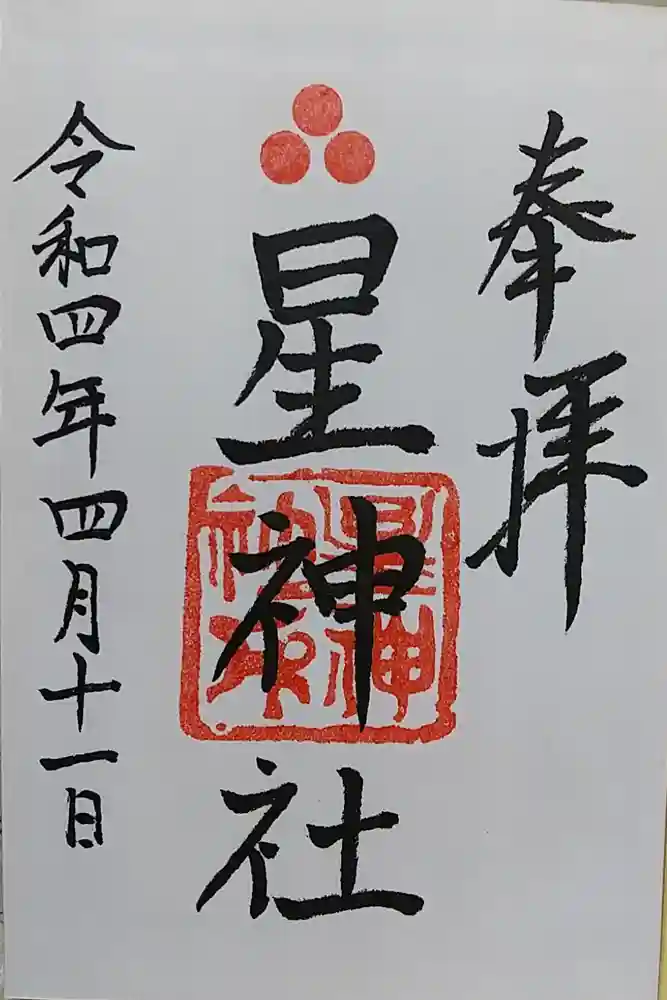 奉拝
星神社
令和四年四月十一日